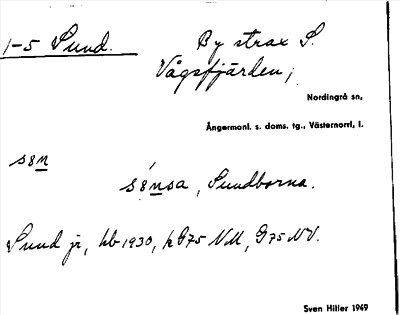 1-5 Sund. By strax S.
Vågsfjärden;
Nordingrå sn,
Ångermanl. s. doms. tg., Västernorrl, l.
s8n
s8nsa, Sundborna.
Sund ji, hb 1930, k G75 NV, G75 NV.
Sven Hiller 1949